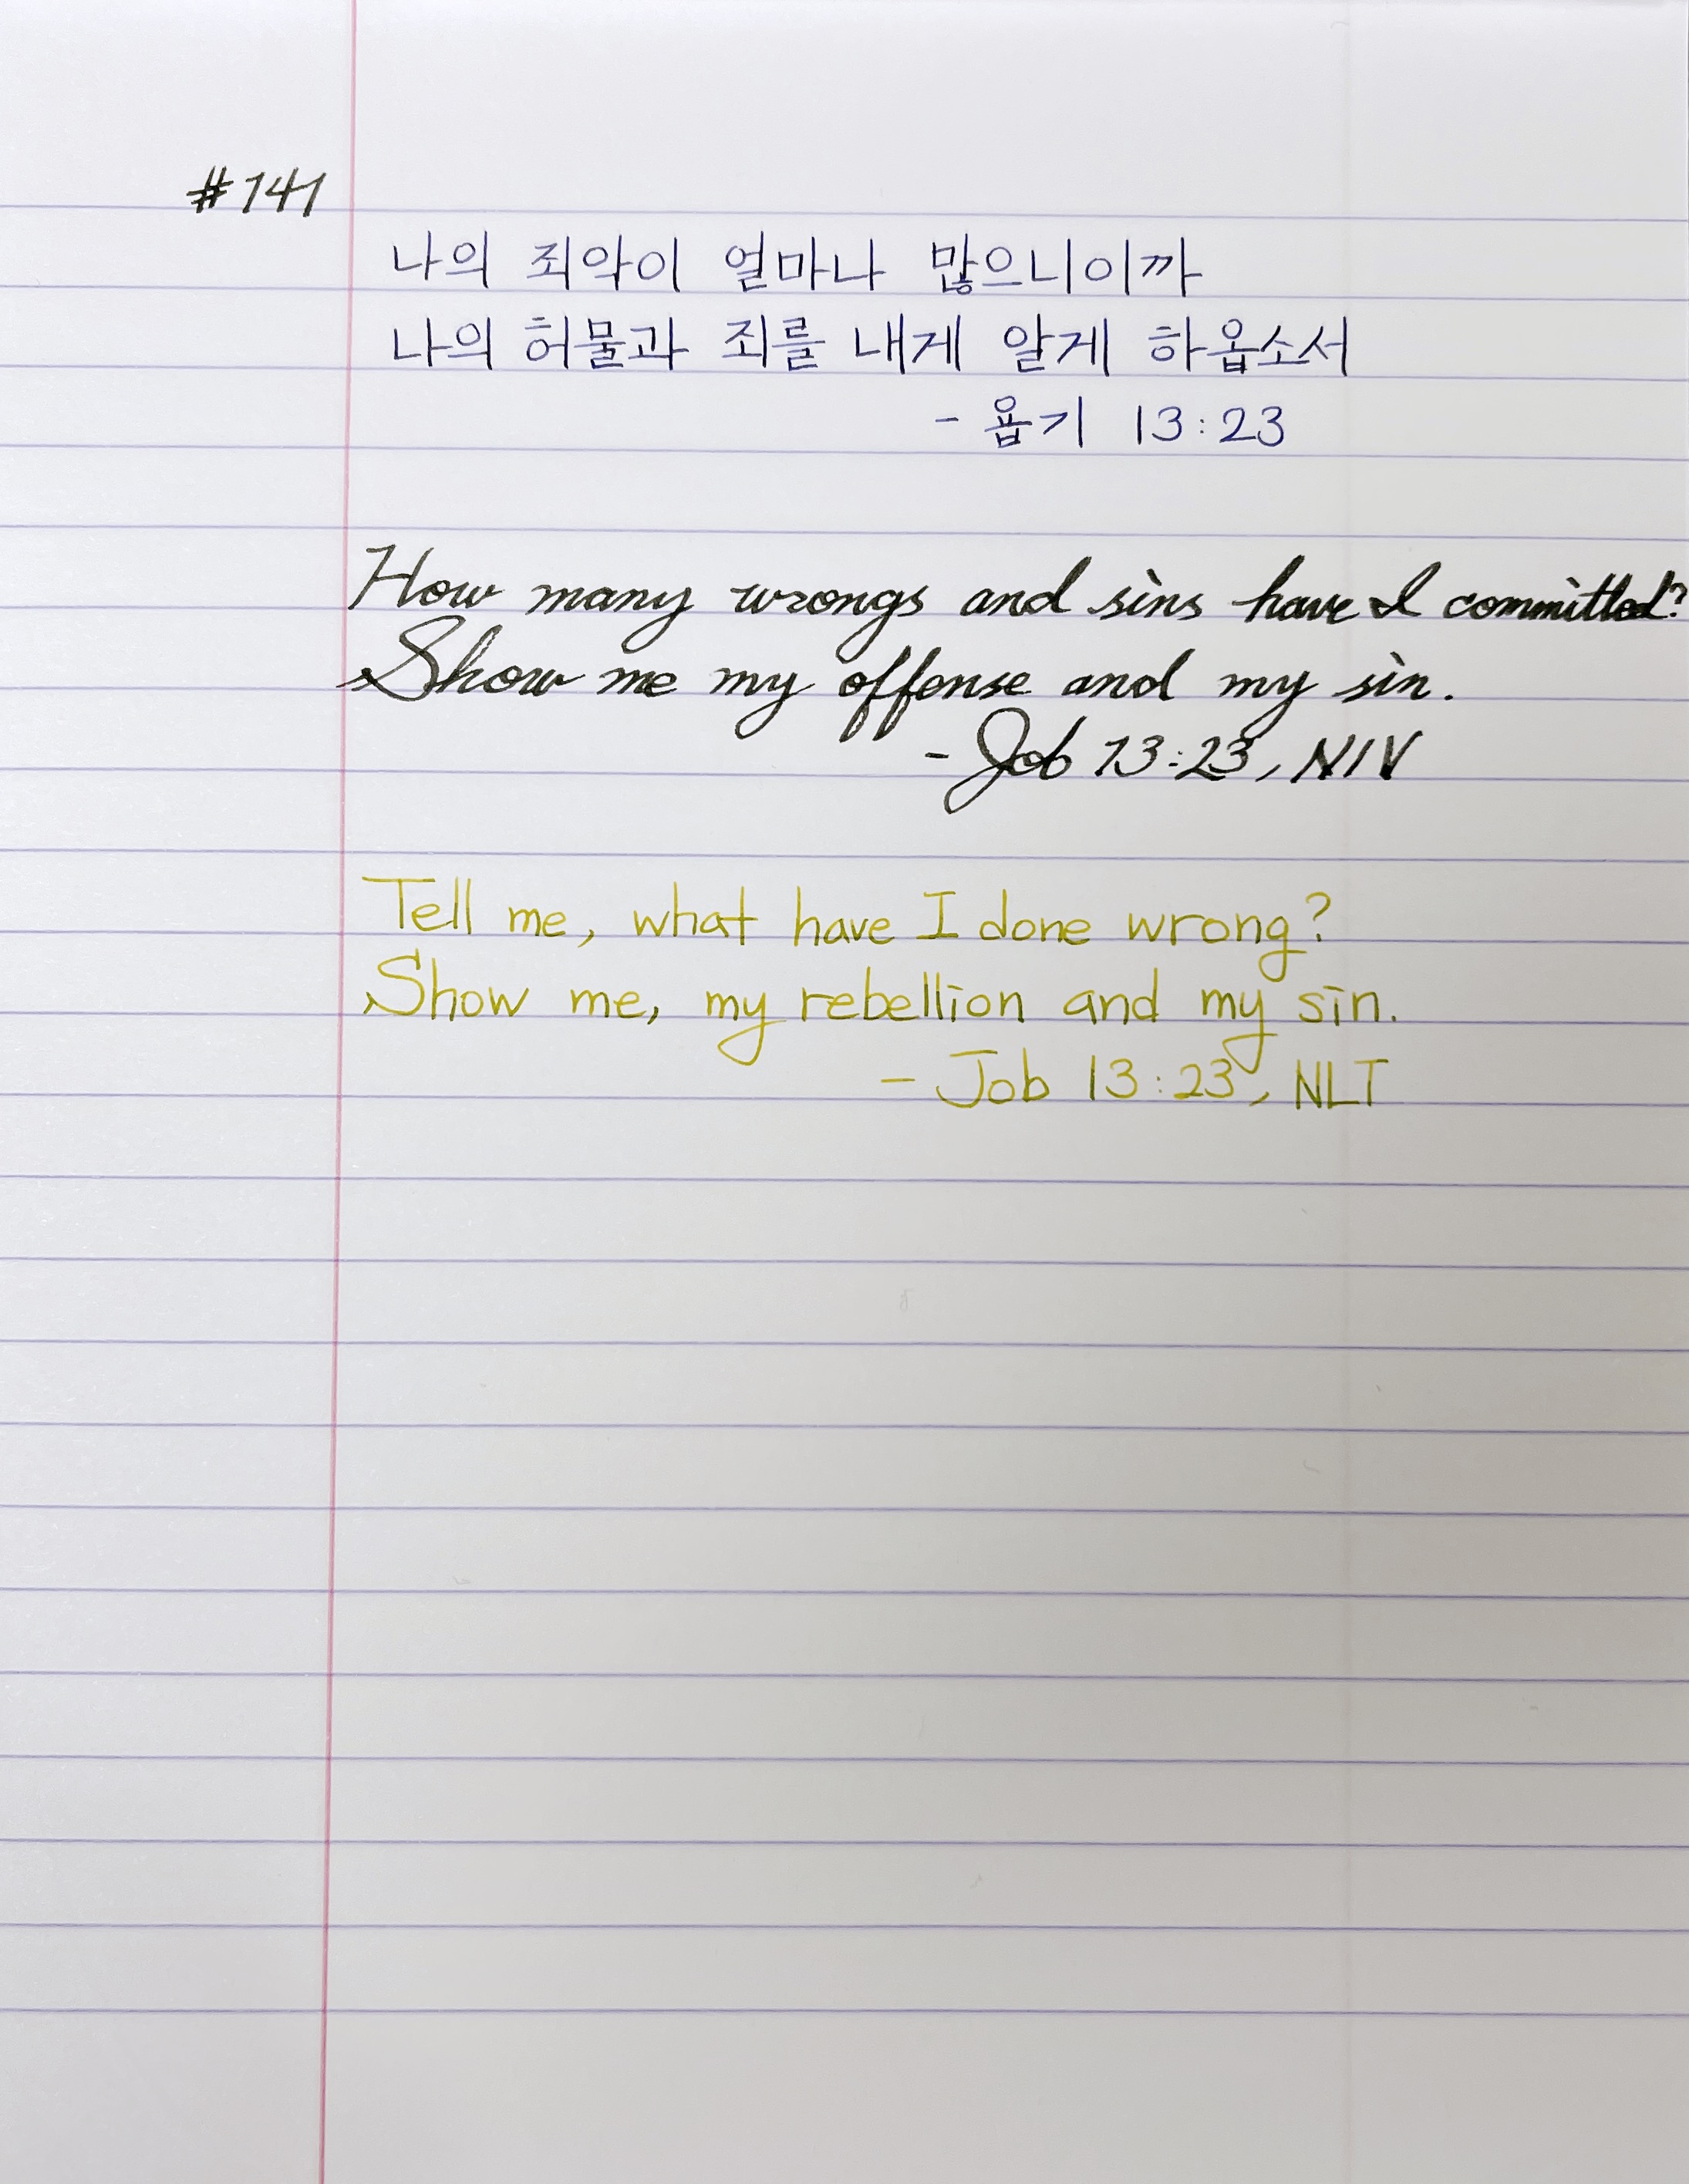 #141
나의 죄악이 얼마나 많으니이까
나의 허물과 죄를 내게 알게 하옵소서
- 욥기 13:23
How many wrongs and sins have I committed?
Show me my offense and my sin.
- Job 13:23, NIV
Tell me, what have I done wrong?
Show me, my rebellion and my sin.
- Job 13:23, NLT